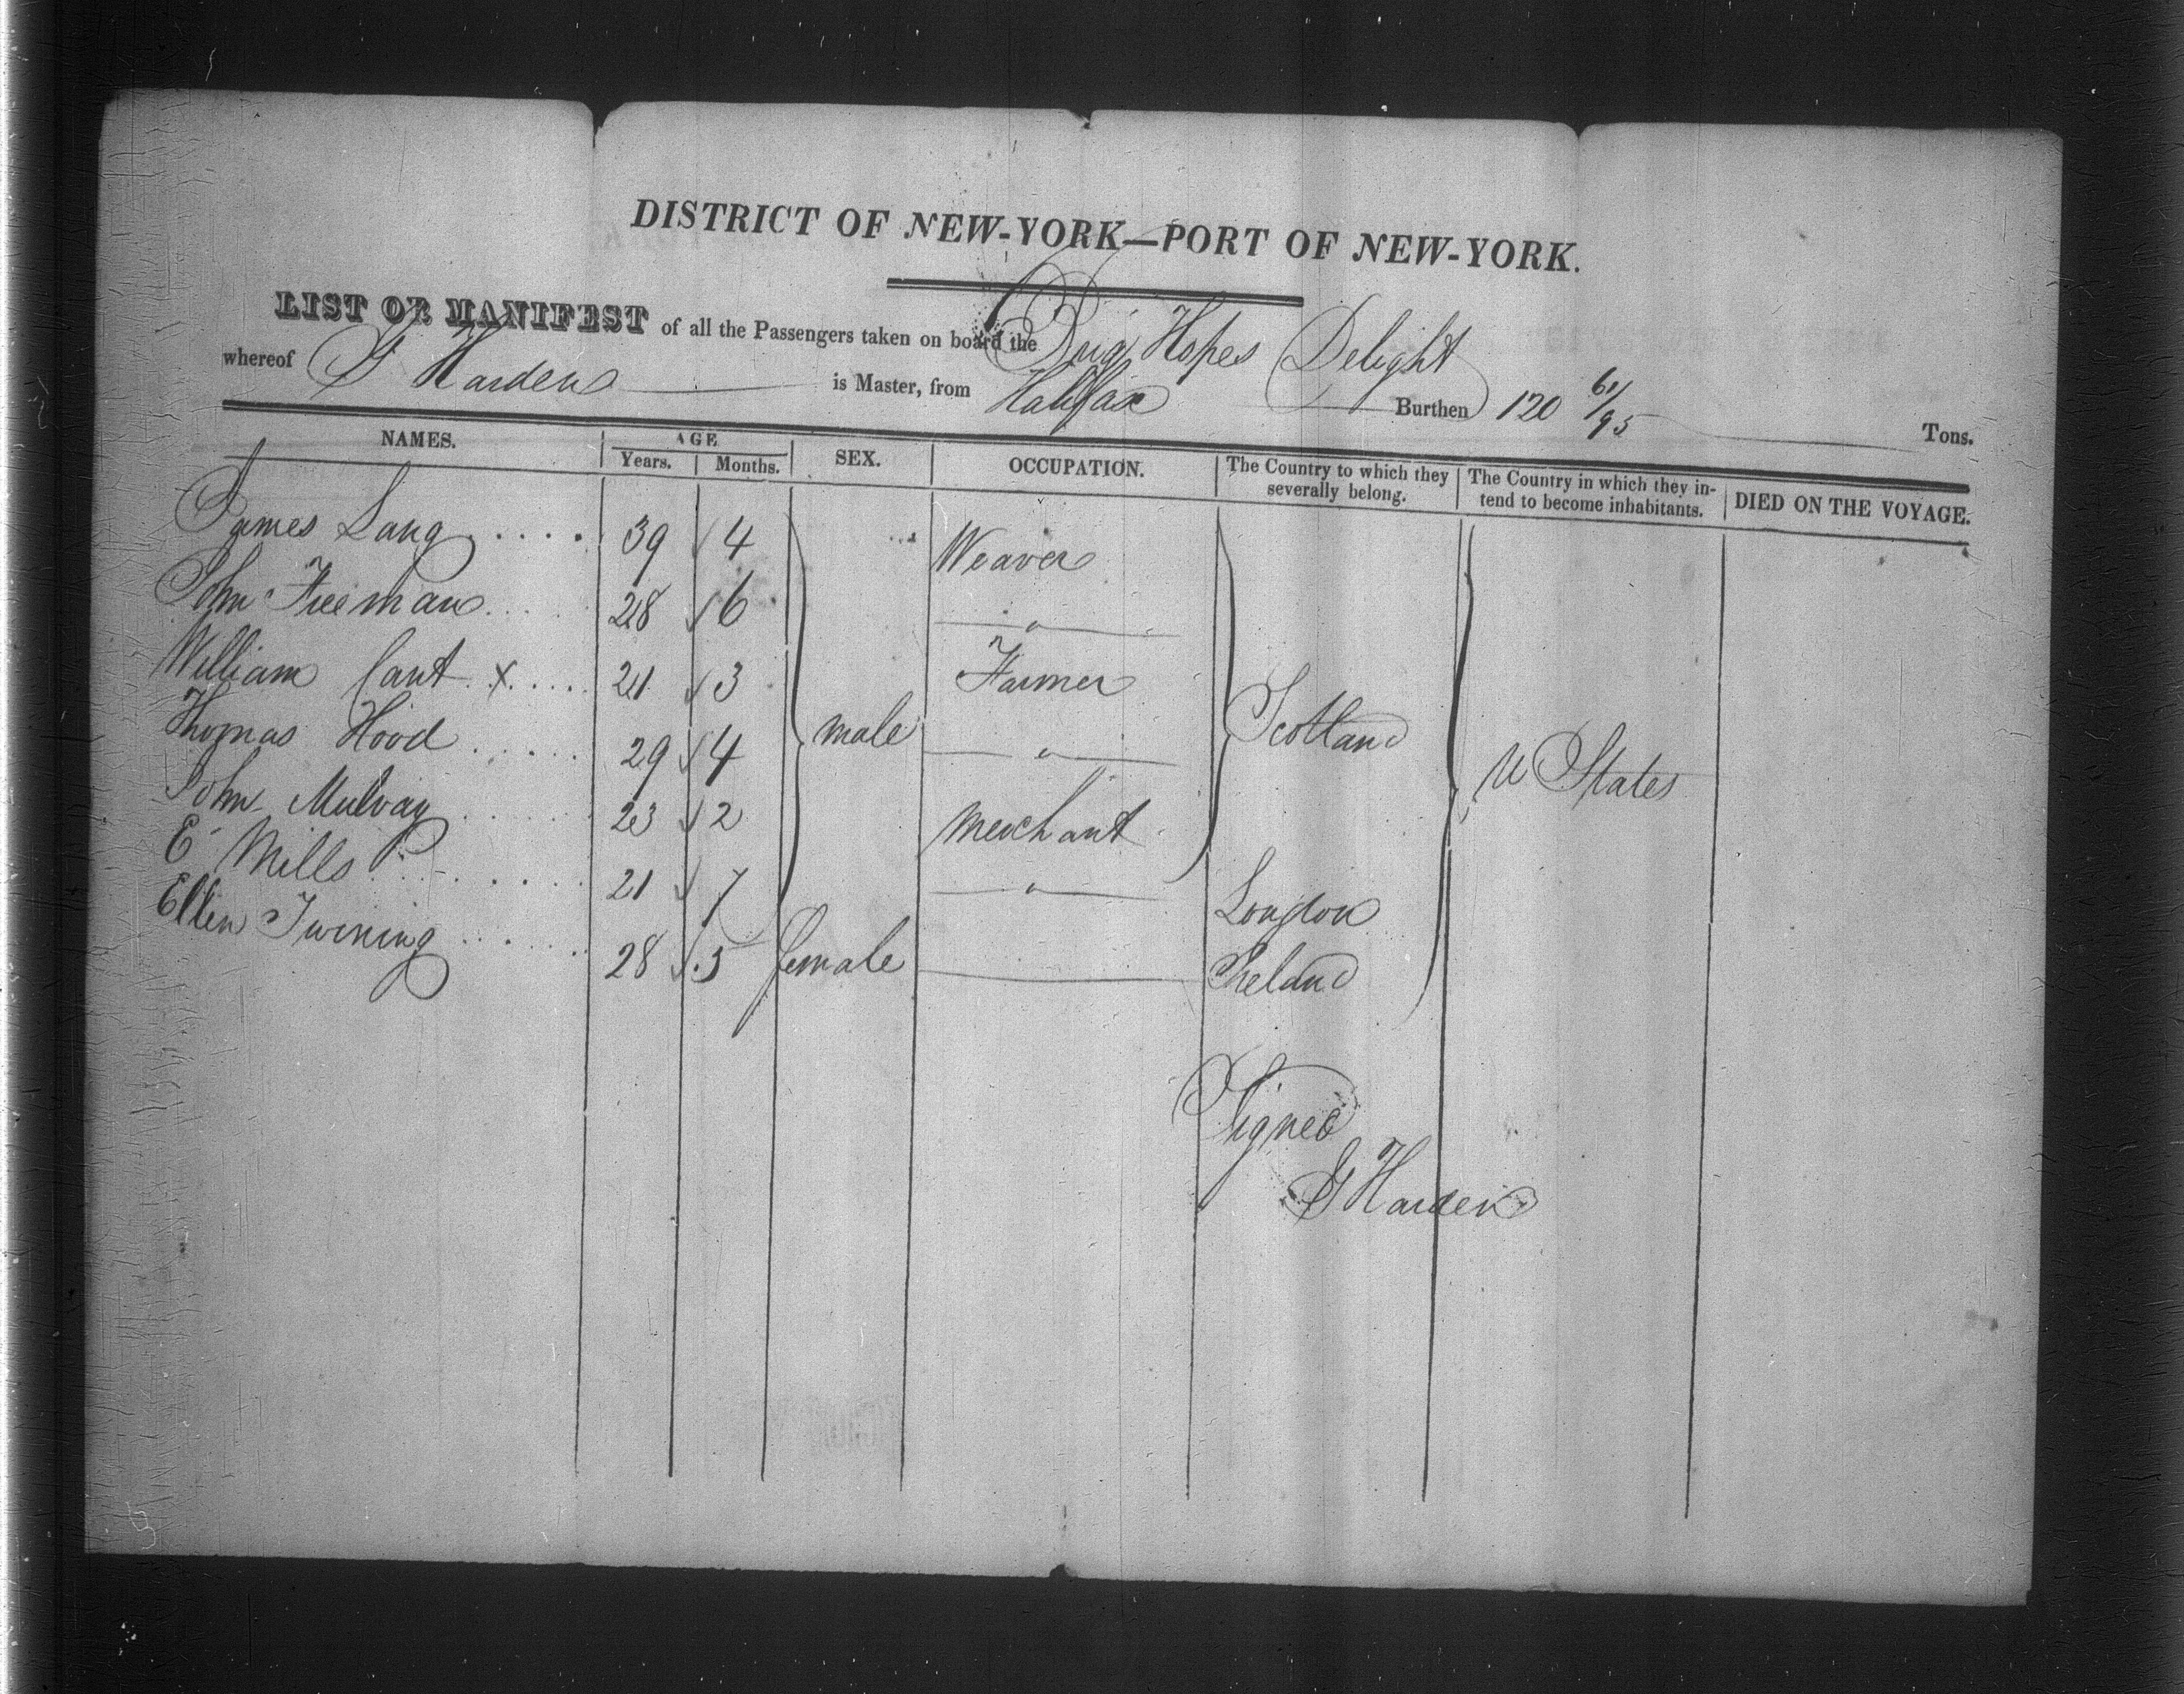 DISTRICT OF NEW-YORK—PORT OF NEW-YORK.
LIST OR MANIFEST of all the Passengers taken on board the Brig Hopes Delight
whereof G Harden is Master, from Halifax Burthen 120 61/95 Tons.
NAMES. AGE SEX. OCCUPATION. The Country to which they severally belong. The Country in which they intend to become inhabitants. DIED ON THE VOYAGE.
Years. Months.
James Lang 39 4 Weaver
John Freeman 28 6 "
William Cant x 21 3 Farmer
Thomas Hood 29 4 male " Scotland U States
John Mulvay 23 2 merchant
E Mills 21 7 " London
Ellen Twining 28 5 female Ireland
Signed
G Harden